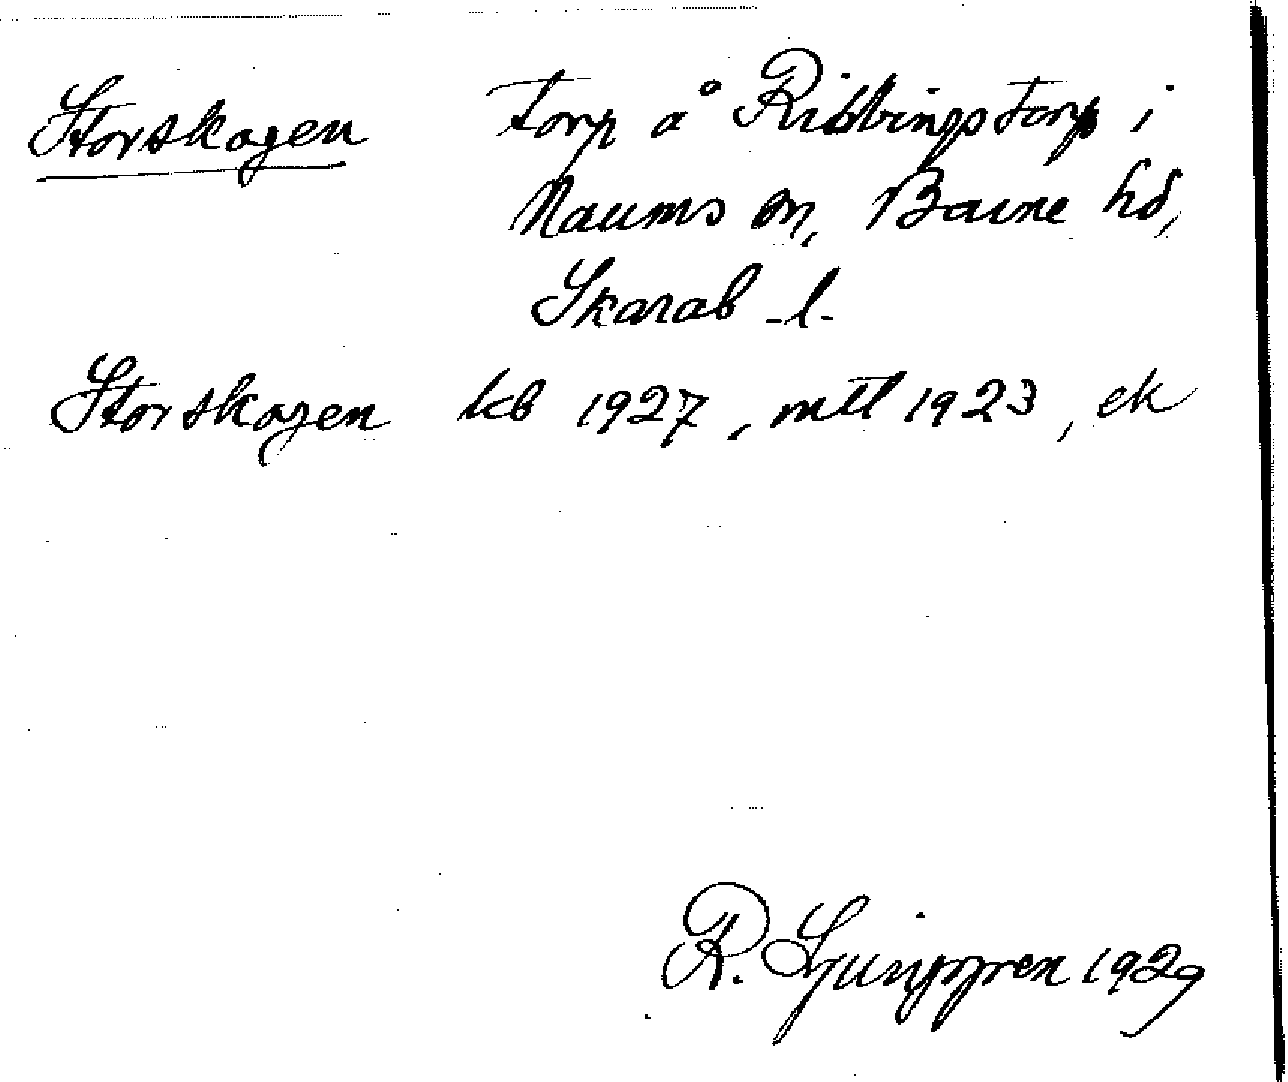 Storskogen torp å Ribbingstorp i
Naums sn, Barne hd,
Skarab -l-
Storskogen kb 1927, mtl 1923, ek
R. Ljunggren 1929